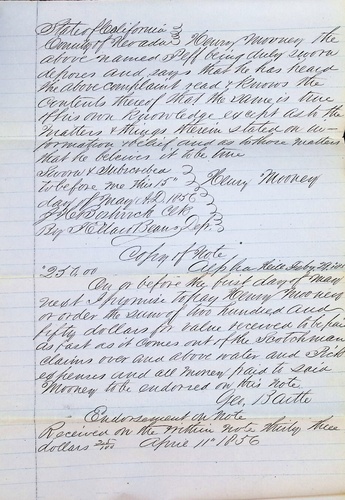 State of California }
County of Nevada } Henry Mooney the
above named Plff being duly sworn
deposes and says that he has heard
the above complaint read & knows the
contents thereof that the same is true
of his own knowledge except as to the
matters & things therein stated on in-
formation & belief, and as to those matters
that he believes it to be true
Sworn & Subscribed }
to before me this 15" } Henry Mooney
day of May A.D. 1856 }
Clk }
By Dpt. }
Copy of Note
"$250.00 Alpha
On or before the first day of May
next I promise to pay Henry Mooney
or order the sum of two hundred and
fifty dollars for value received to be paid
as fast as it comes out of the Scotchman
claims over and above water and
expenses and all money paid to said
Mooney to be endorsed on this note
Geo, Battle
Endorsement on Note
Received on the within note thirty three
dollars April 11" 1856